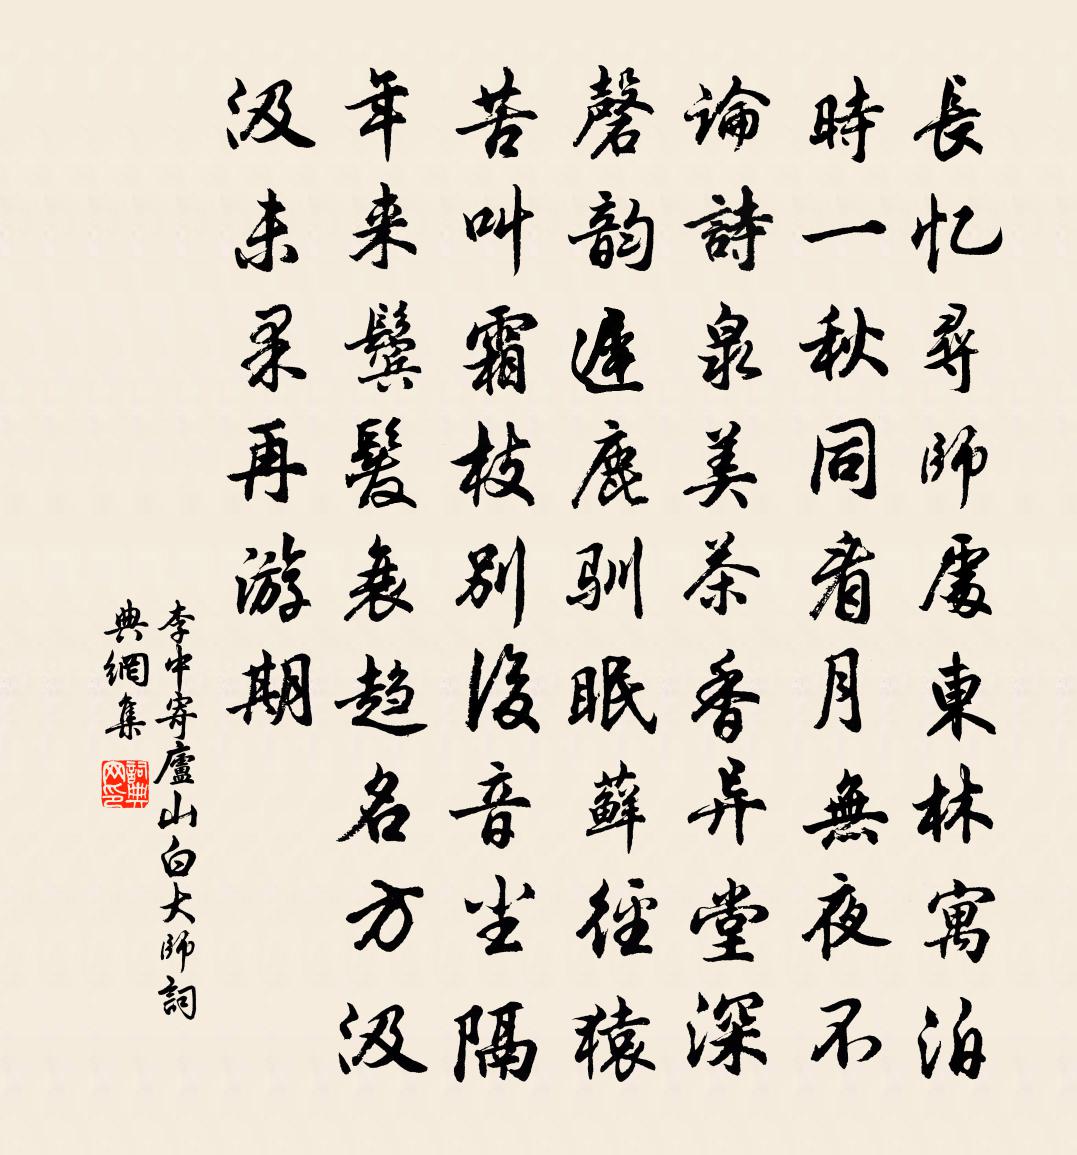 長忆尋師處東林寓泊
時一秋同看月無夜不
論詩泉美茶香异堂深
磬韵遲鹿馴眠蘚徑猿
苦叫霜枝别後音尘隔
年来鬓髮衰趋名方汲
汲未果再游期
李中寄廬山白大師詞
典網集
詞典
网印